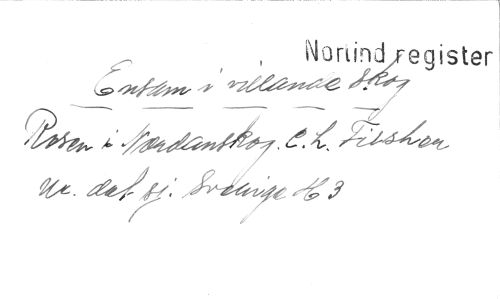 Norlind register
Ensam i villande skog
Rosen i Nordanskog. C. h. Fischer
Ur. det sj. Sverige H 3